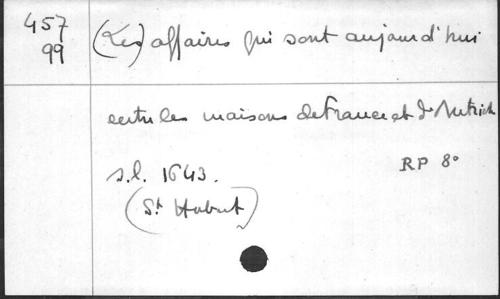 457
99
(Les) affaires qui sont aujourd'hui
entre les maisons de France et d'Autrich
RP 8°
s.l. 1643.
(St Hubert)